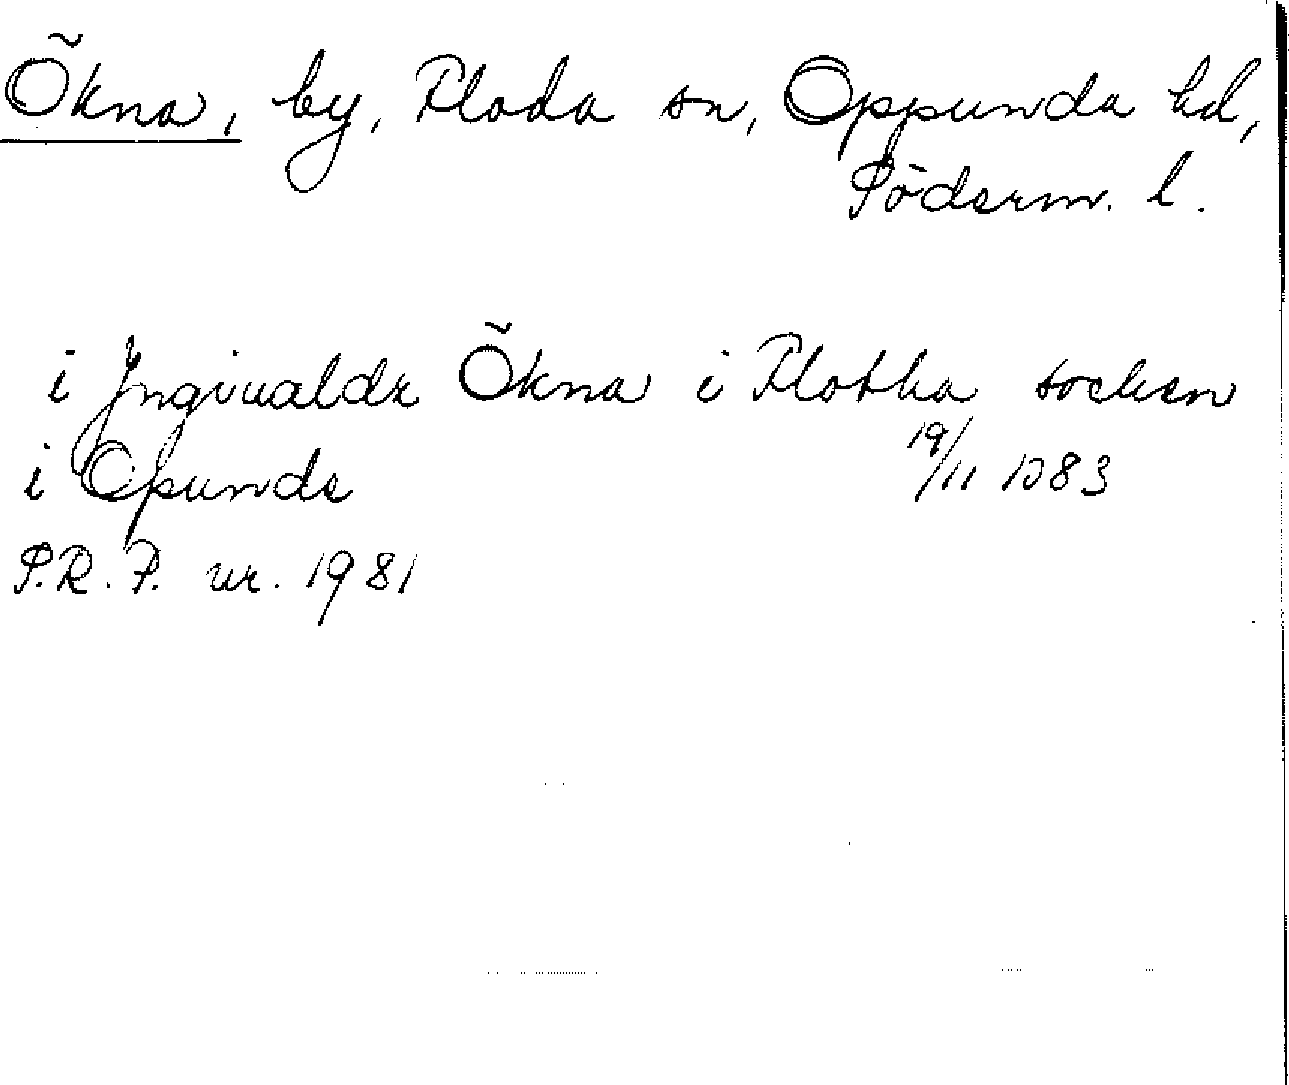 Ökna, by, Floda sn, Oppunda hd,
Söderm. l.
i Jngiualdz Ökna i Flotha socken
i Opunde 19/11 1383
S.R.P. nr. 1981